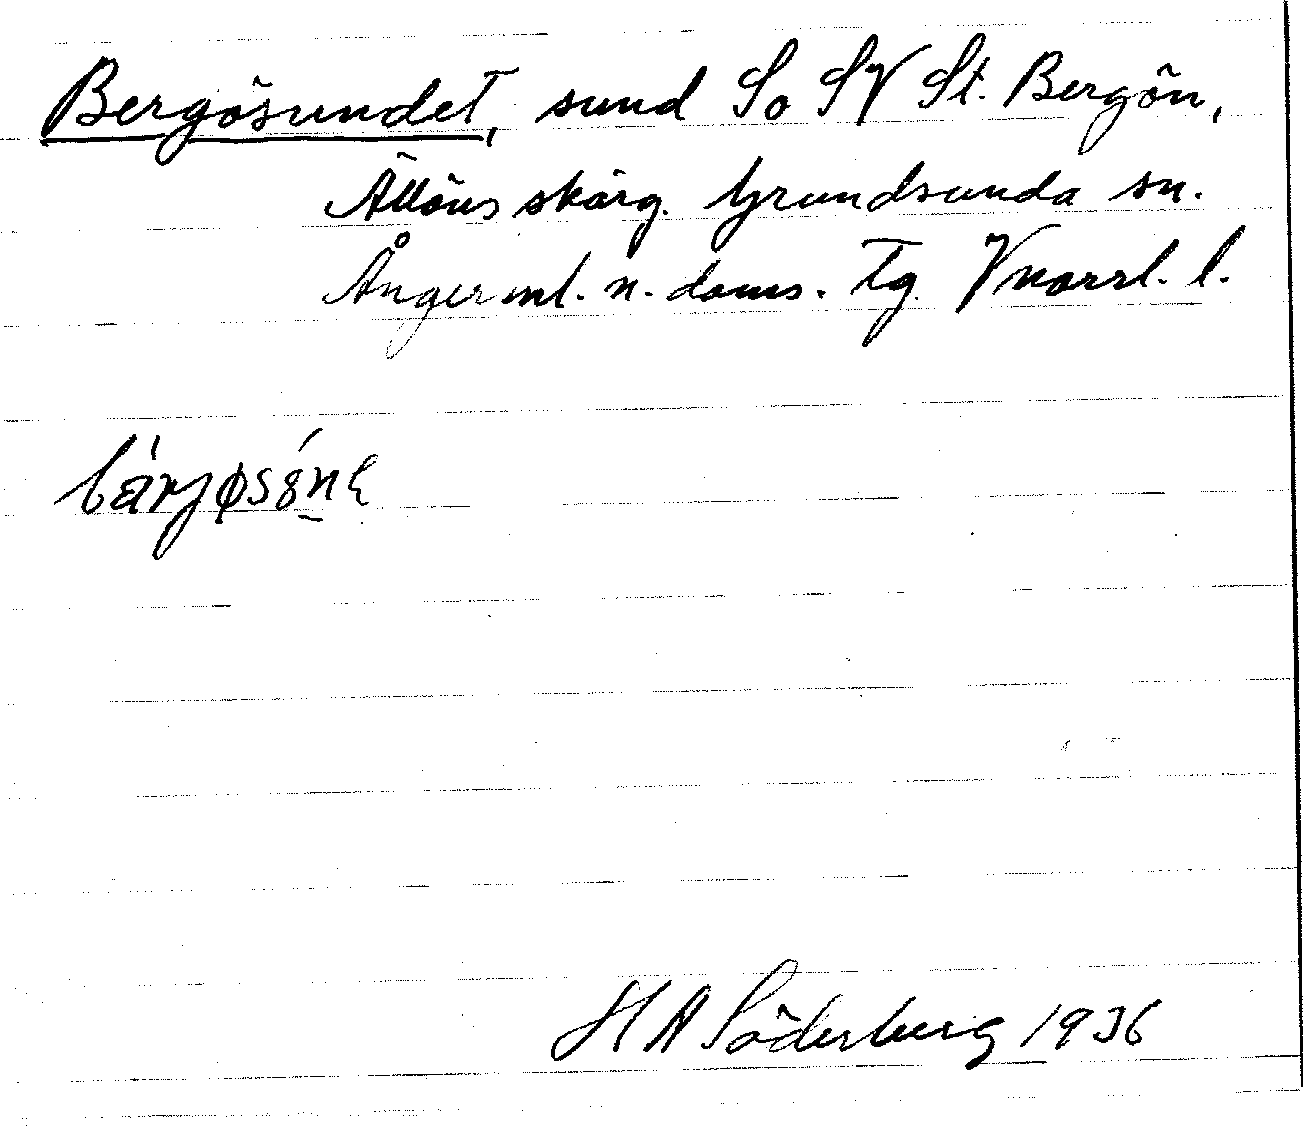 Bergösundet, sund So SV St. Bergön,
Ällöns skärg. Grundsunda sn.
Ångerml. n. doms. Tg. Vnorrl. l.
bárjøsón
H A Söderberg 1936